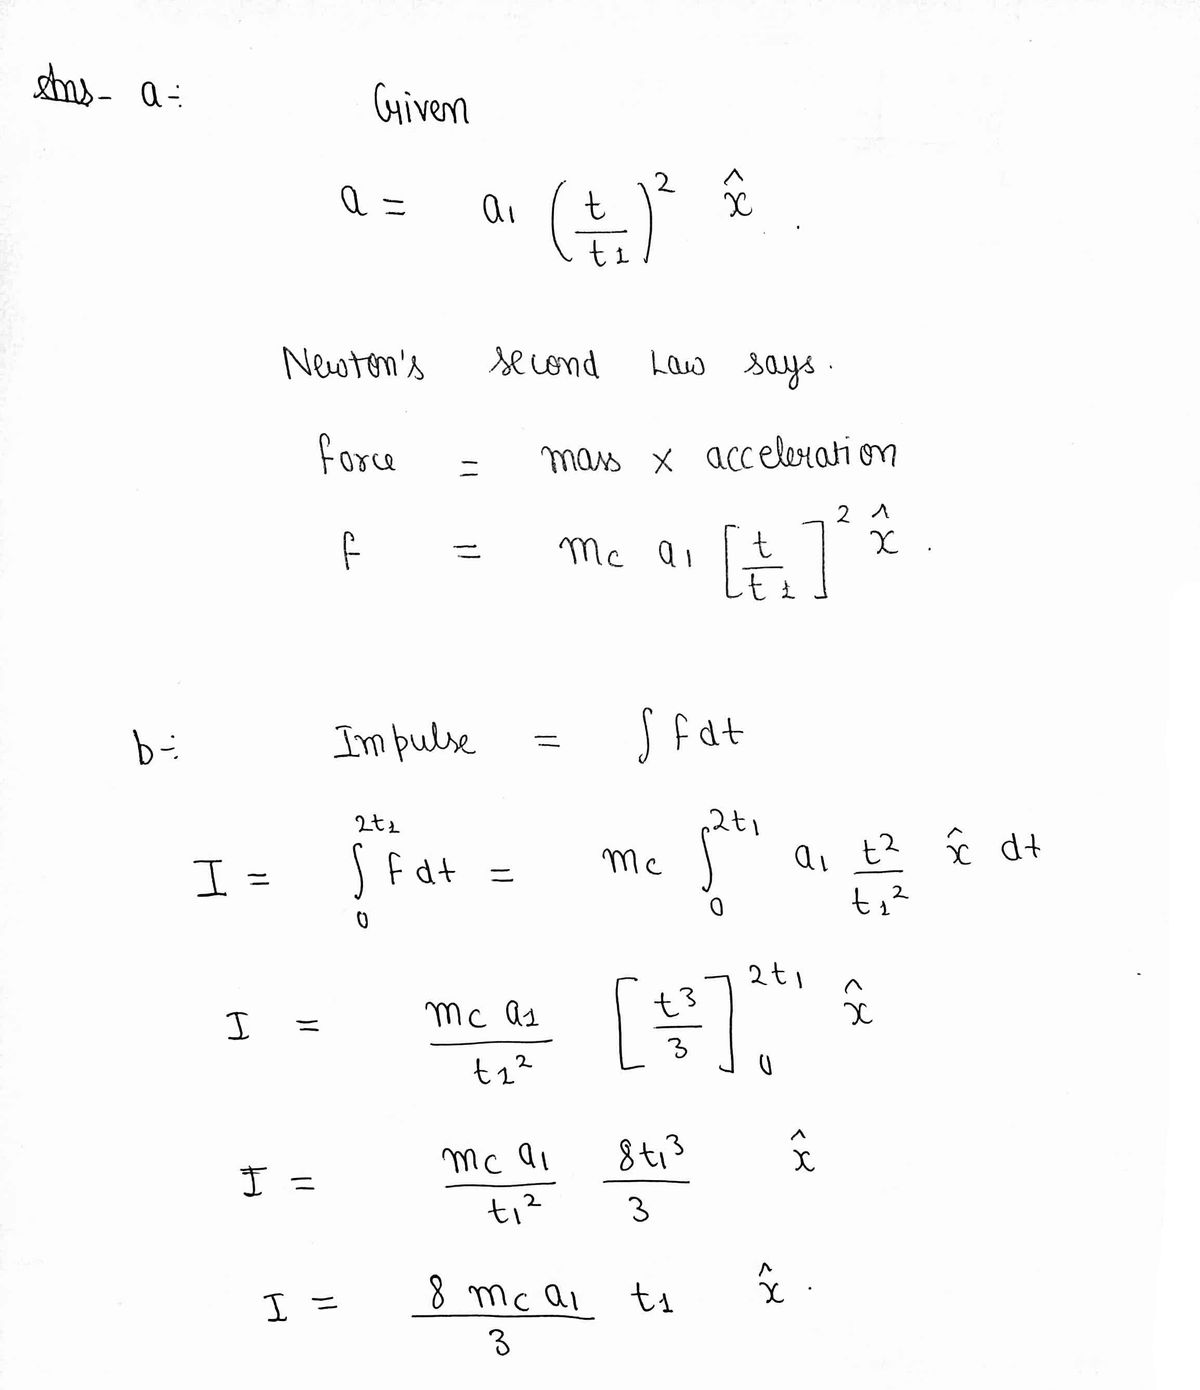 Ans- a÷ Given
a = a₁ (t/t₁)² x̂ .
Newton's second Law says.
force = mass x acceleration
f = mc a₁ [t/t₁]² x̂ .
b÷ Impulse = ∫ f dt
I = ∫₀^2t₁ f dt = mc ∫₀^2t₁ a₁ t²/t₁² x̂ dt
I = mc a₁/t₁² [t³/3]₀^2t₁ x̂
I = mc a₁/t₁² 8t₁³/3 x̂
I = 8 mc a₁/3 t₁ x̂ .